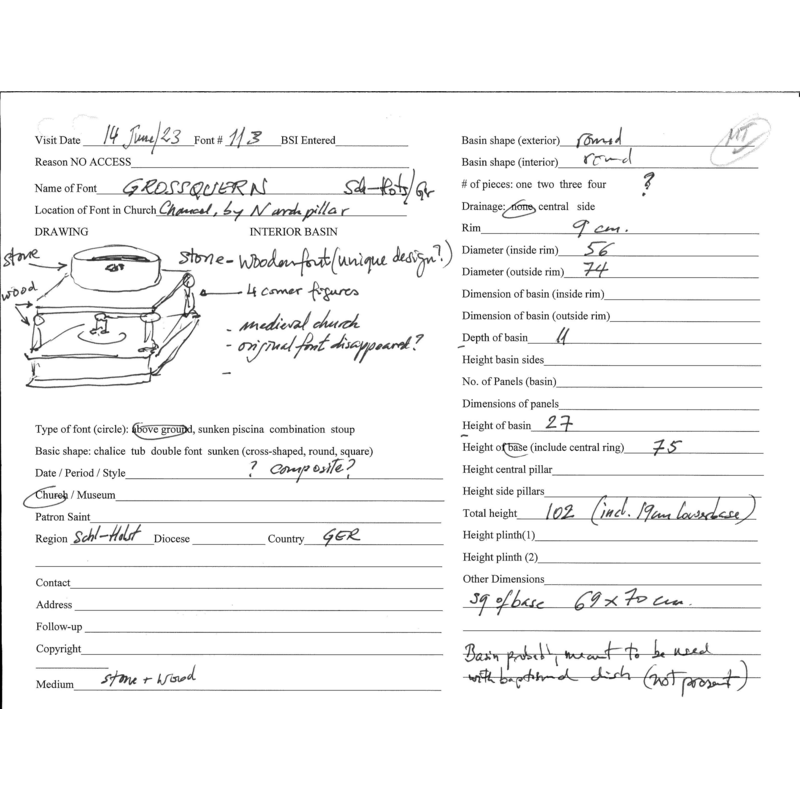 Visit Date 14 June/23 Font # 113 BSI Entered
Reason NO ACCESS
Name of Font GROSSQUERN Sch-Hols/Gr
Location of Font in Church Chancel, by N arch pillar
DRAWING INTERIOR BASIN
stone
wood
stone-wooden font (unique design?)
4 corner figures
- medieval church
- original font disappeared?
-
Type of font (circle): above ground, sunken piscina combination stoup
Basic shape: chalice tub double font sunken (cross-shaped, round, square)
Date / Period / Style ? composite?
Church / Museum
Patron Saint
Region Schl-Holst Diocese Country GER
Contact
Address
Follow-up
Copyright
Medium stone + wood
MT
Basin shape (exterior) round
Basin shape (interior) round
# of pieces: one two three four ?
Drainage: none, central side
Rim 9 cm.
Diameter (inside rim) 56
Diameter (outside rim) 74
Dimension of basin (inside rim)
Dimension of basin (outside rim)
Depth of basin 11
Height basin sides
No. of Panels (basin)
Dimensions of panels
Height of basin 27
Height of base (include central ring) 75
Height central pillar
Height side pillars
Total height 102 (incl. 19cm lower base)
Height plinth(1)
Height plinth (2)
Other Dimensions
sq of base 69 x 70 cm.
Basin probabl, meant to be used
with baptismal dish (not present)